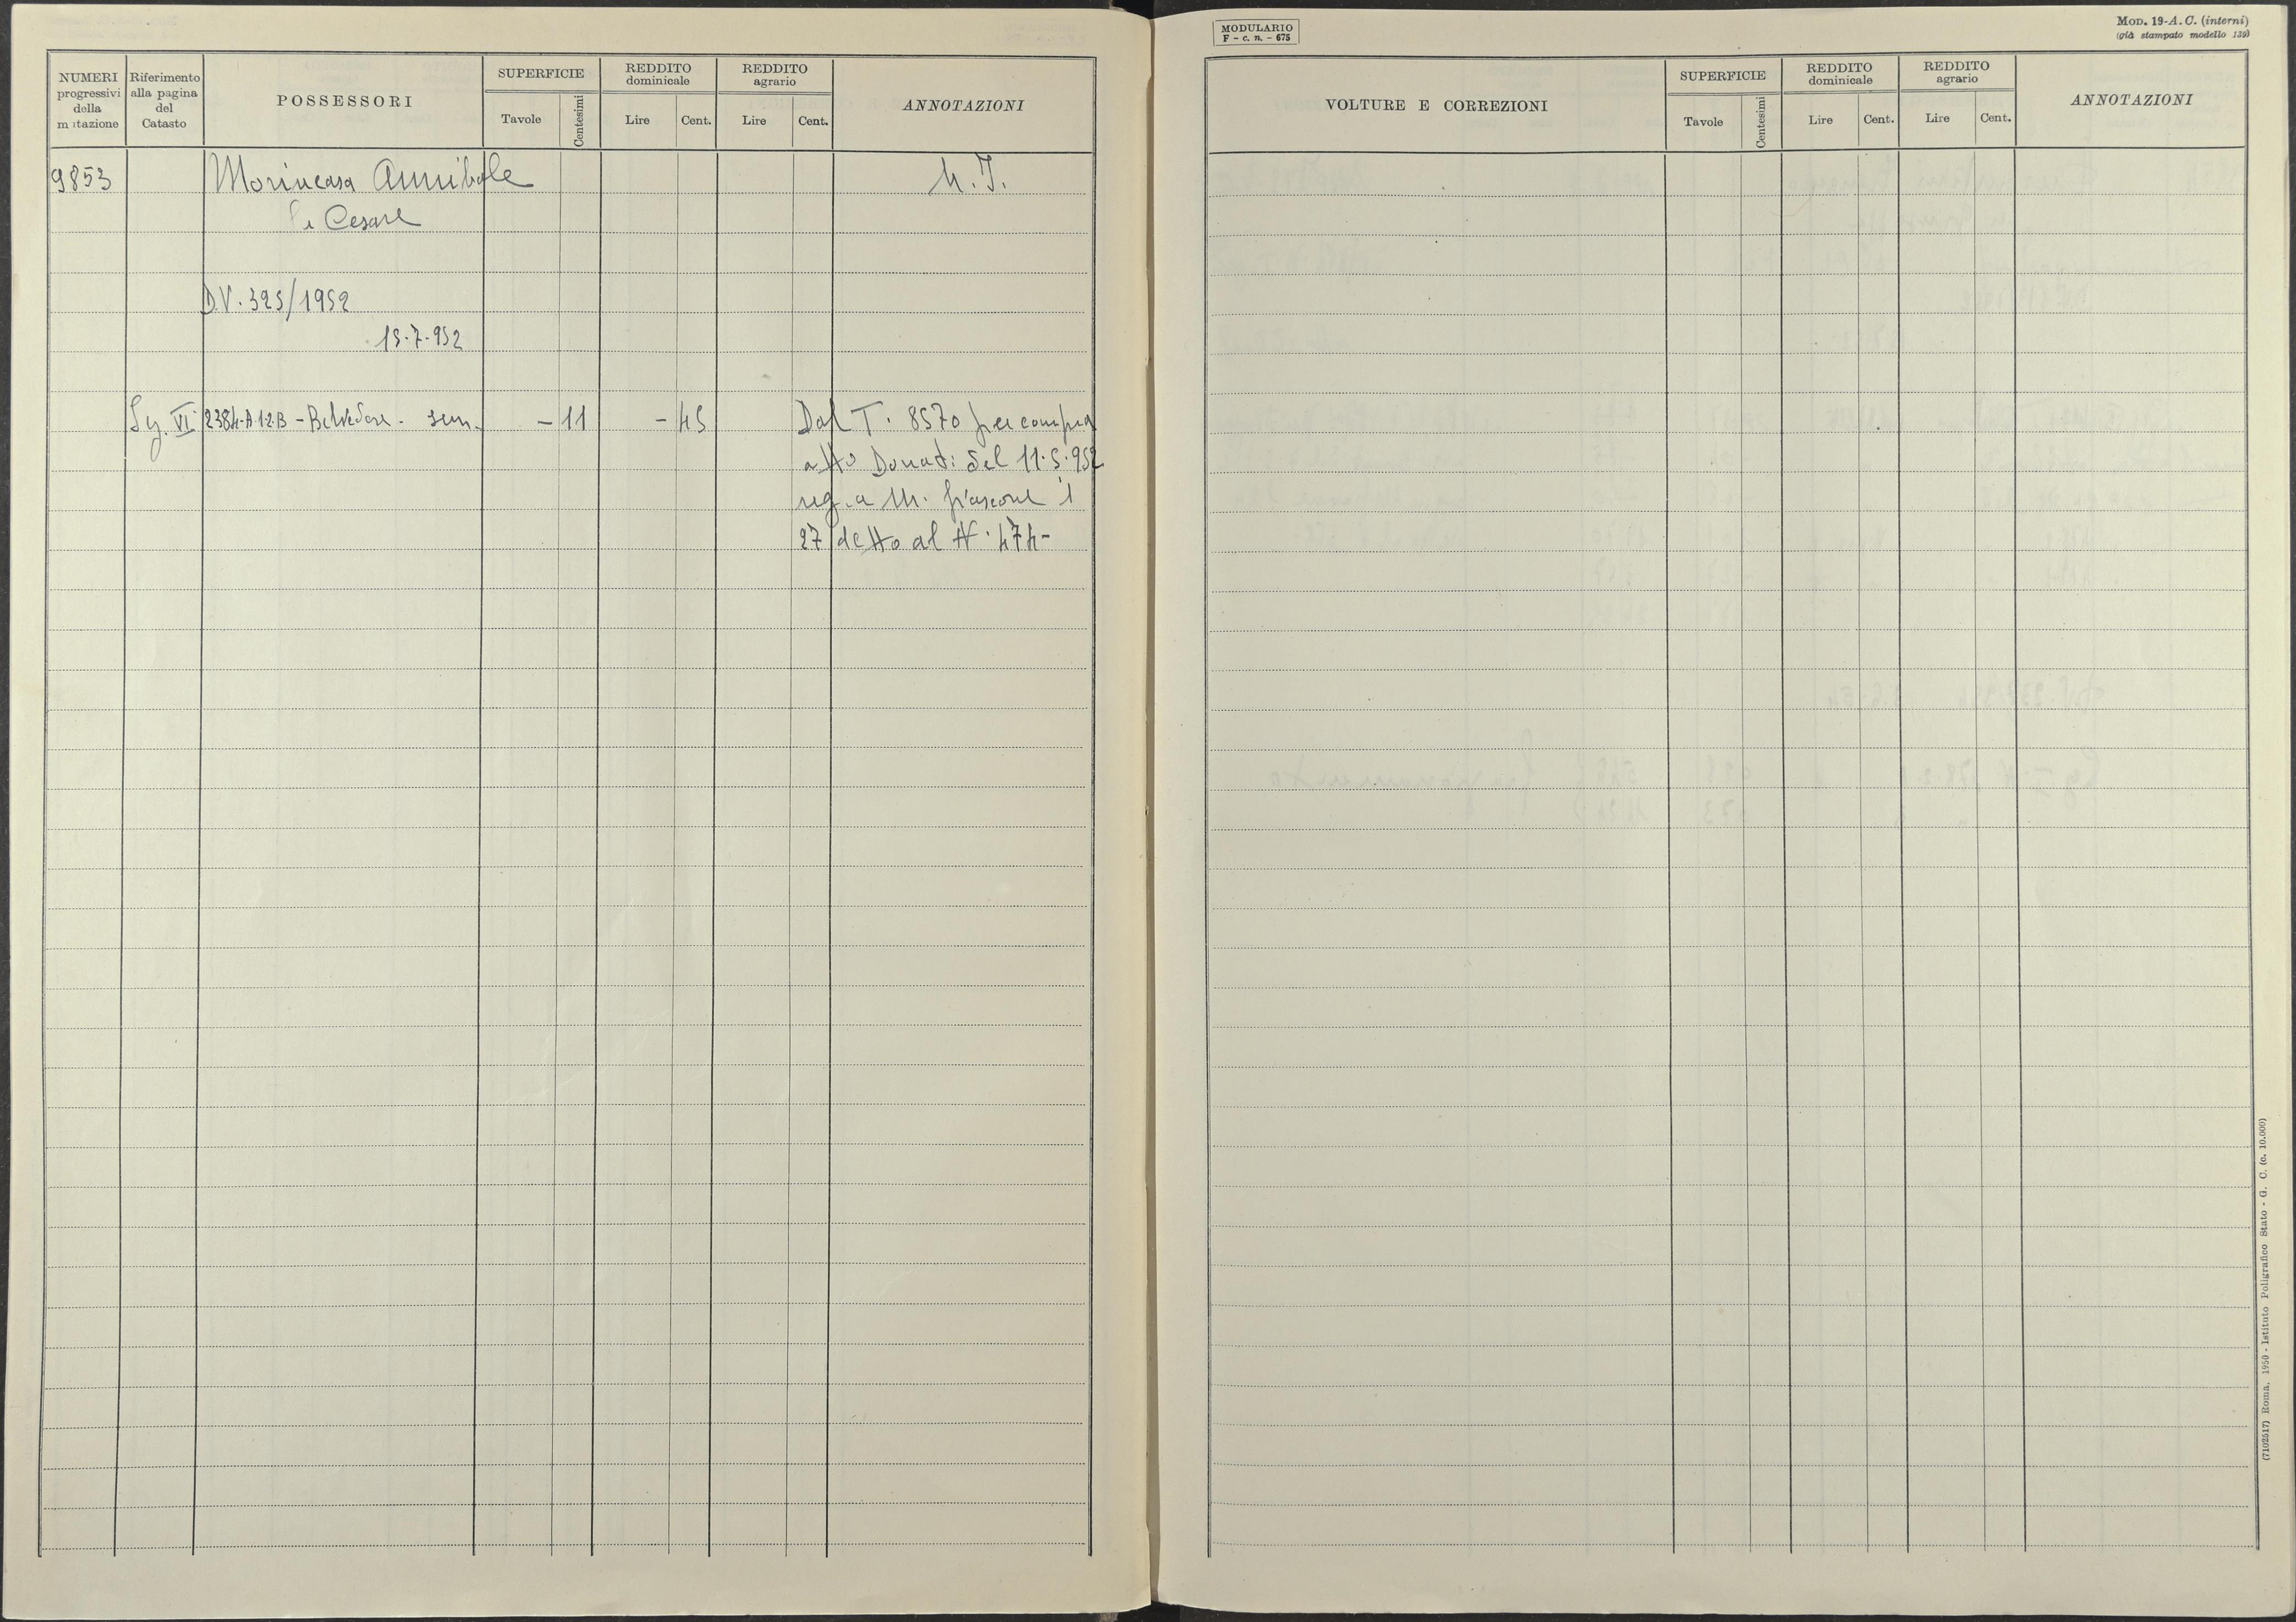 NUMERI progressivi della mutazione
Riferimento alla pagina del Catasto
POSSESSORI
SUPERFICIE
Tavole
Centesimi
REDDITO dominicale
Lire
Cent.
REDDITO agrario
Lire
Cent.
ANNOTAZIONI
9853 Morincasa Annibale
di Cesare
D.V. 325/1952
15.7.952
Sez. VI 2384-A.1.2.B - Belvedere - sem. - 11 - 45 Dal T. 8570 per compra
atto Donati del 11.5.952
reg. a M. fiascone il
27 detto al N. 474-
MODULARIO
F - c. n. - 675
MOD. 19-A. C. (interni)
(già stampato modello 139)
VOLTURE E CORREZIONI
SUPERFICIE
Tavole
Centesimi
REDDITO dominicale
Lire
Cent.
REDDITO agrario
Lire
Cent.
ANNOTAZIONI
(7102517) Roma, 1950 - Istituto Poligrafico Stato - G. C. (c. 10.000)